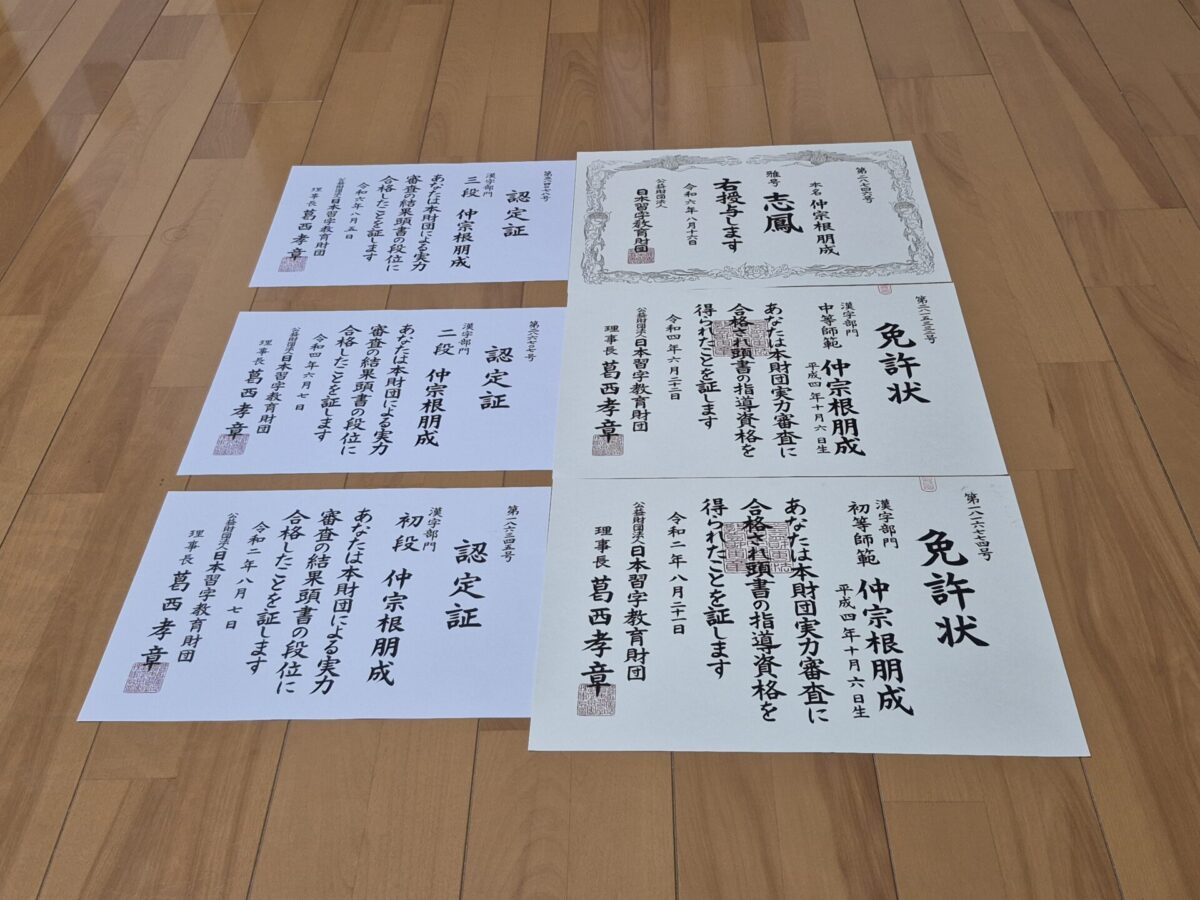 認定証
漢字部門
三段 仲宗根朋成
あなたは本財団による実力
審査の結果頭書の段位に
合格したことを証します
令和六年八月五日
公益財団法人日本習字教育財団
理事長 葛西孝章
本名 仲宗根朋成
雅号 志鳳
右授与します
令和六年八月十六日
公益財団法人
日本習字教育財団
認定証
漢字部門
二段 仲宗根朋成
あなたは本財団による実力
審査の結果頭書の段位に
合格したことを証します
令和四年六月七日
公益財団法人日本習字教育財団
理事長 葛西孝章
免許状
漢字部門
中等師範 仲宗根朋成
平成四年十月六日生
あなたは本財団実力審査に
合格され頭書の指導資格を
得られたことを証します
令和四年六月二十二日
公益財団法人日本習字教育財団
理事長 葛西孝章
第一八六三四五号
認定証
漢字部門
初段 仲宗根朋成
あなたは本財団による実力
審査の結果頭書の段位に
合格したことを証します
令和二年八月七日
公益財団法人日本習字教育財団
理事長 葛西孝章
第一八六七七四号
免許状
漢字部門
初等師範 仲宗根朋成
平成四年十月六日生
あなたは本財団実力審査に
合格され頭書の指導資格を
得られたことを証します
令和二年八月二十一日
公益財団法人日本習字教育財団
理事長 葛西孝章